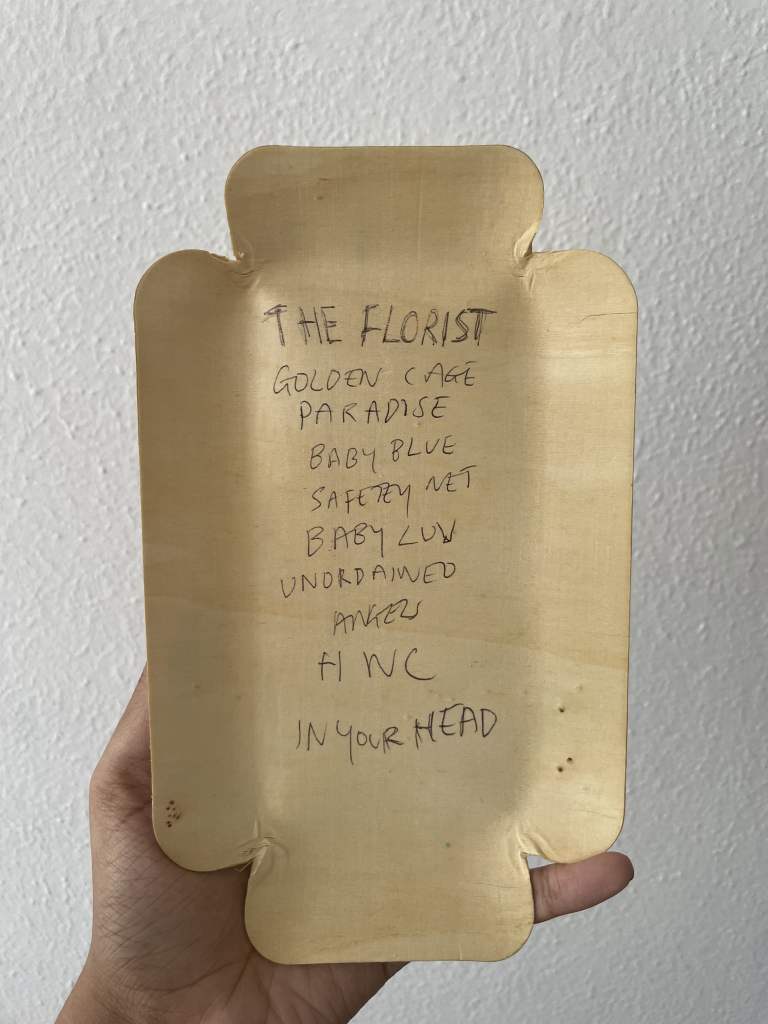 THE FLORIST
GOLDEN CAGE
PARADISE
BABY BLUE
SAFETEY NET
BABY LUV
UNORDAINED
ANGELS
HWC
IN YOUR HEAD